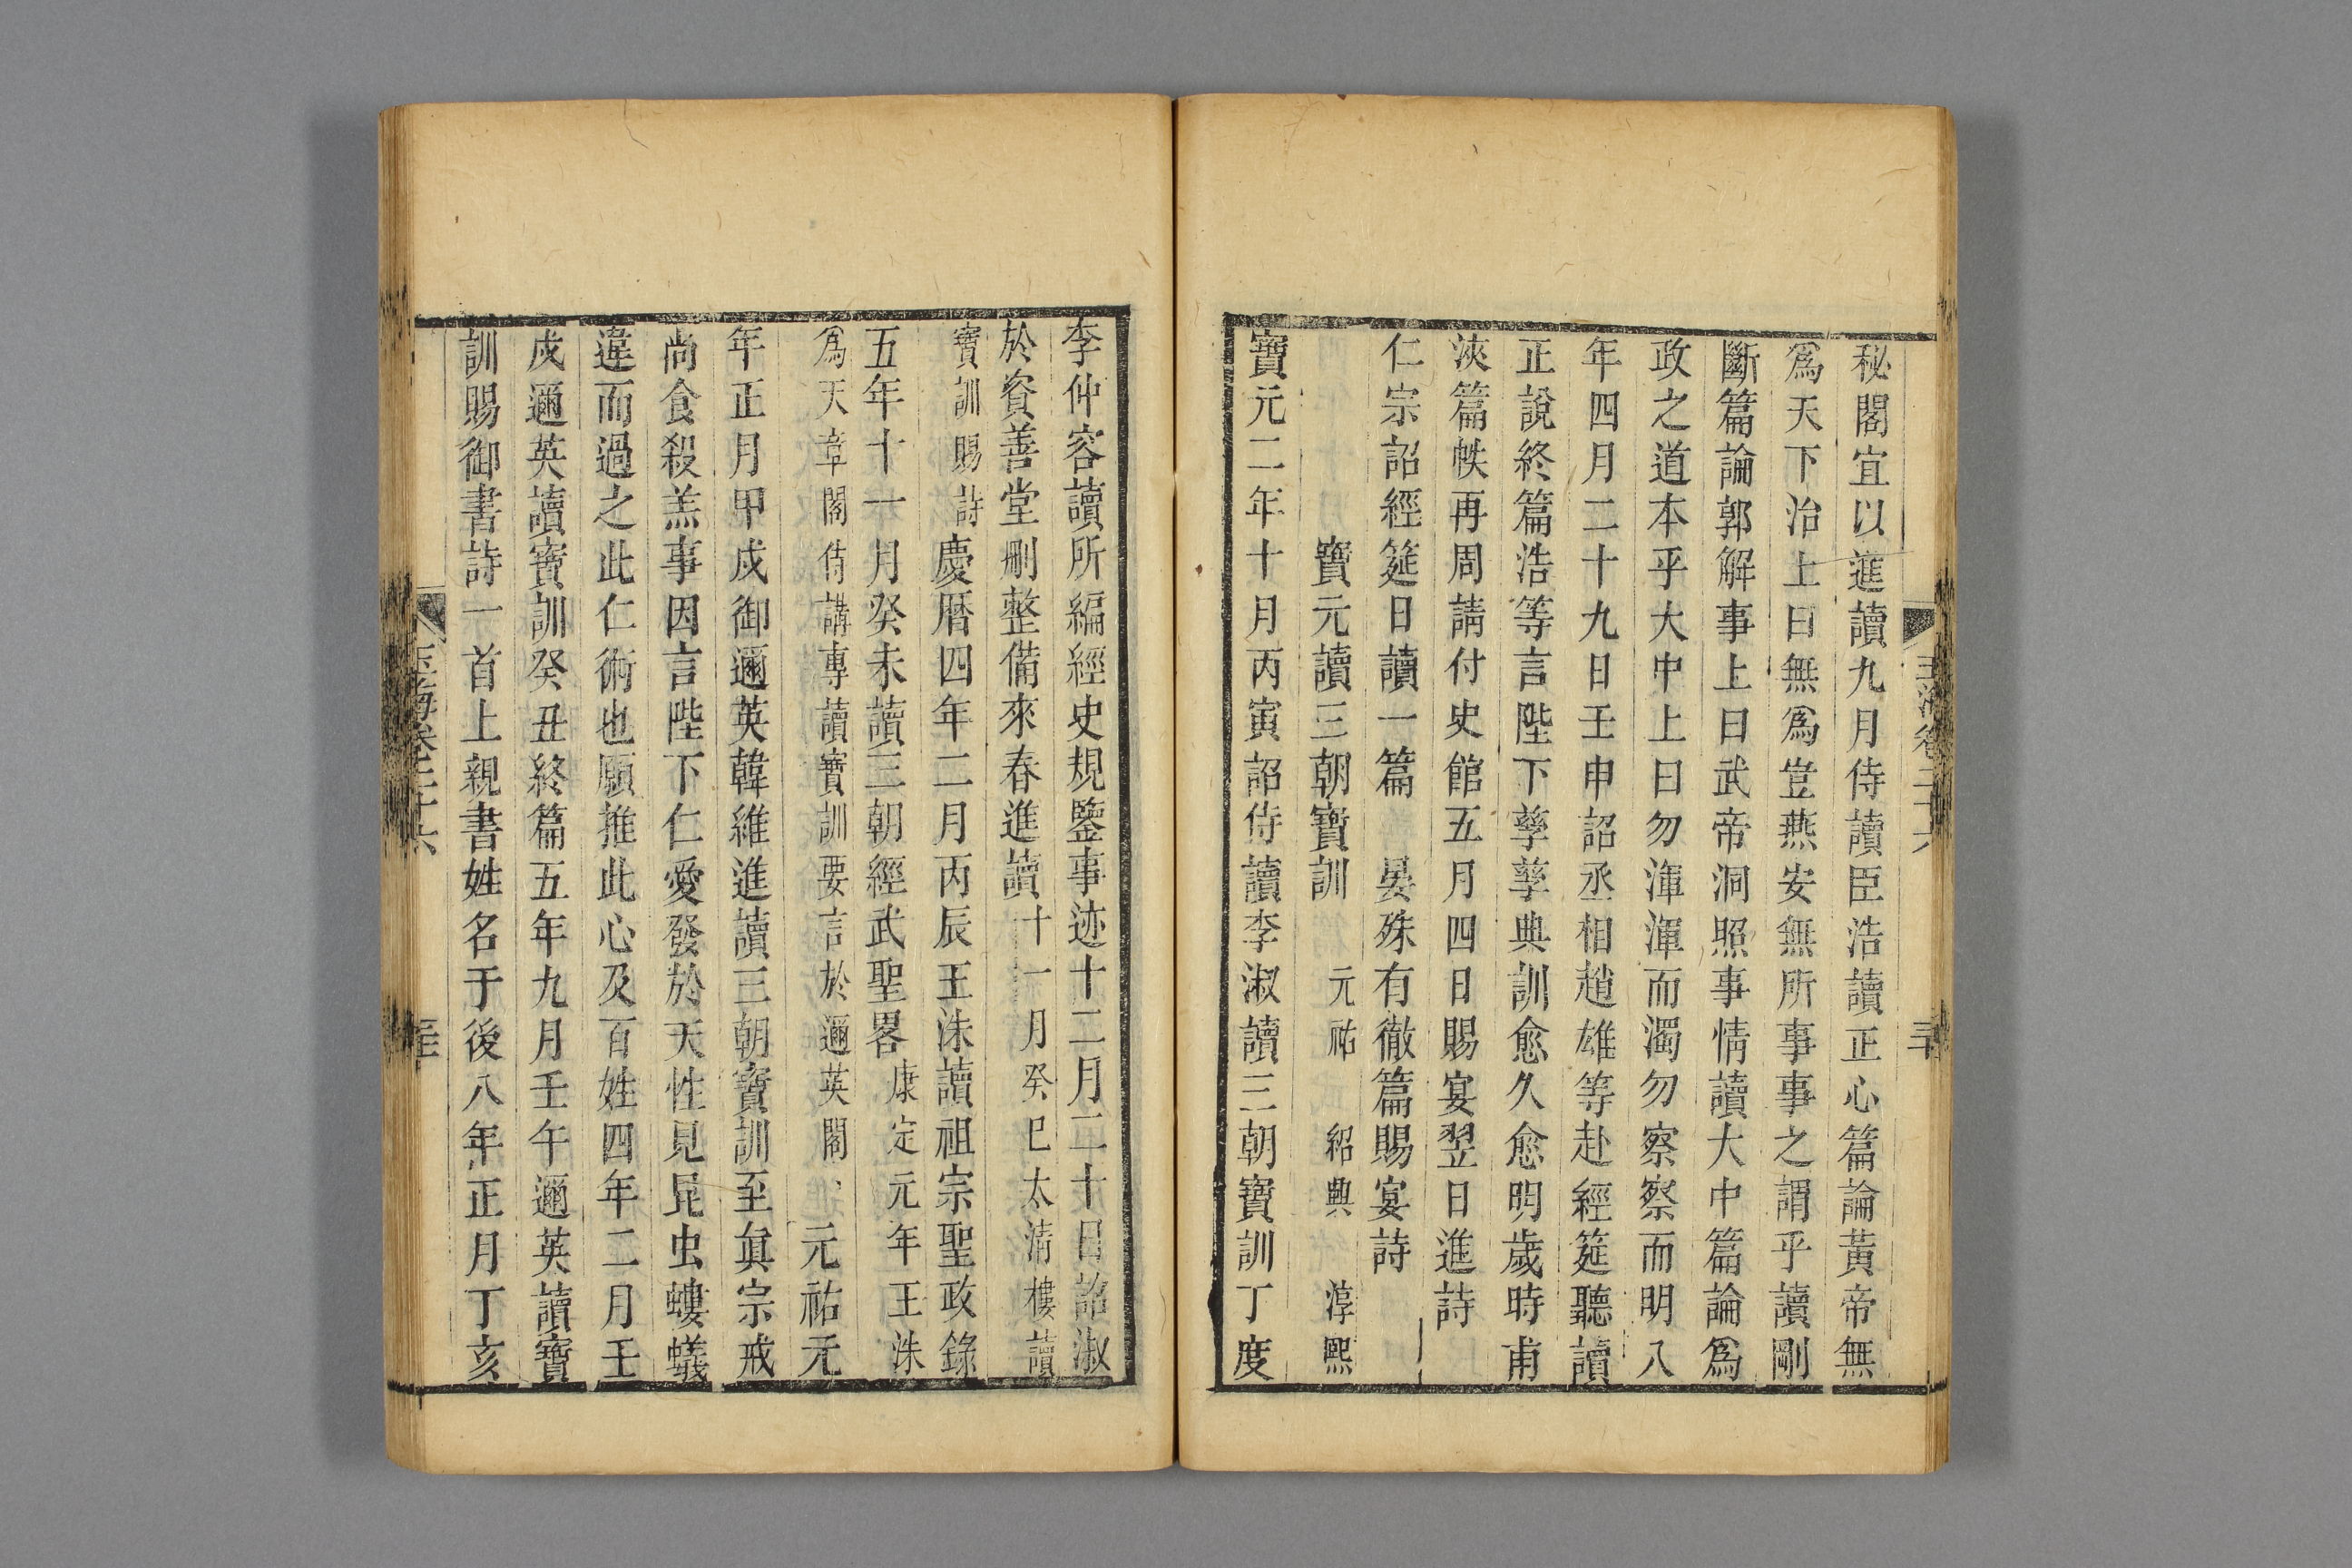 秘閣宜以進讀九月侍讀臣浩讀正心篇論黃帝無
爲天下治上曰無爲豈燕安無所事事之謂乎讀剛
斷篇論郭解事上曰武帝洞照事情讀大中篇論爲
政之道本乎大中上曰勿渾渾而濁勿察察而明八
年四月二十九日壬申詔丞相趙雄等赴經筵聽讀
正說終篇浩等言陛下孳孳典訓愈久愈明歲時甫
浹篇帙再周請付史館五月四日賜宴翌日進詩
仁宗詔經筵日讀一篇 晏殊有徹篇賜宴詩
寶元讀三朝寶訓 元祐 紹興 淳熙
寶元二年十月丙寅詔侍讀李淑讀三朝寶訓丁度
李仲容讀所編經史規鑒事迹十二月二十日詔淑
於資善堂刪整備來春進讀十一月癸巳太清樓讀
寶訓賜詩慶曆四年二月丙辰王洙讀祖宗聖政錄
五年十一月癸未讀三朝經武聖畧康定元年王洙
爲天章閣侍講專讀寶訓要言於邇英閣 元祐元
年正月甲戌御邇英韓維進讀三朝寶訓至眞宗戒
尚食殺羔事因言陛下仁愛發於天性見昆虫螻蟻
違而過之此仁術也願推此心及百姓四年二月壬
戌邇英讀寶訓癸丑終篇五年九月壬午邇英讀寶
訓賜御書詩一首上親書姓名于後八年正月丁亥
玉海卷二十六